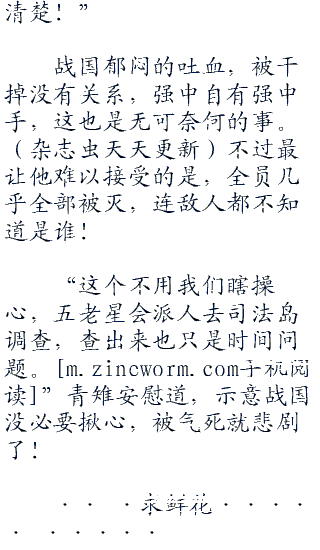 清楚！”
战国郁闷的吐血，被干
掉没有关系，强中自有强中
手，这也是无可奈何的事。
（杂志虫天天更新）不过最
让他难以接受的是，全员几
乎全部被灭，连敌人都不知
道是谁！
“这个不用我们瞎操
心，五老星会派人去司法岛
调查，查出来也只是时间问
题。[m.zincworm.com手机阅
读]”青雉安慰道，示意战国
没必要揪心，被气死就悲剧
了！
· · ·求鲜花· · · ·
· · · · · ·